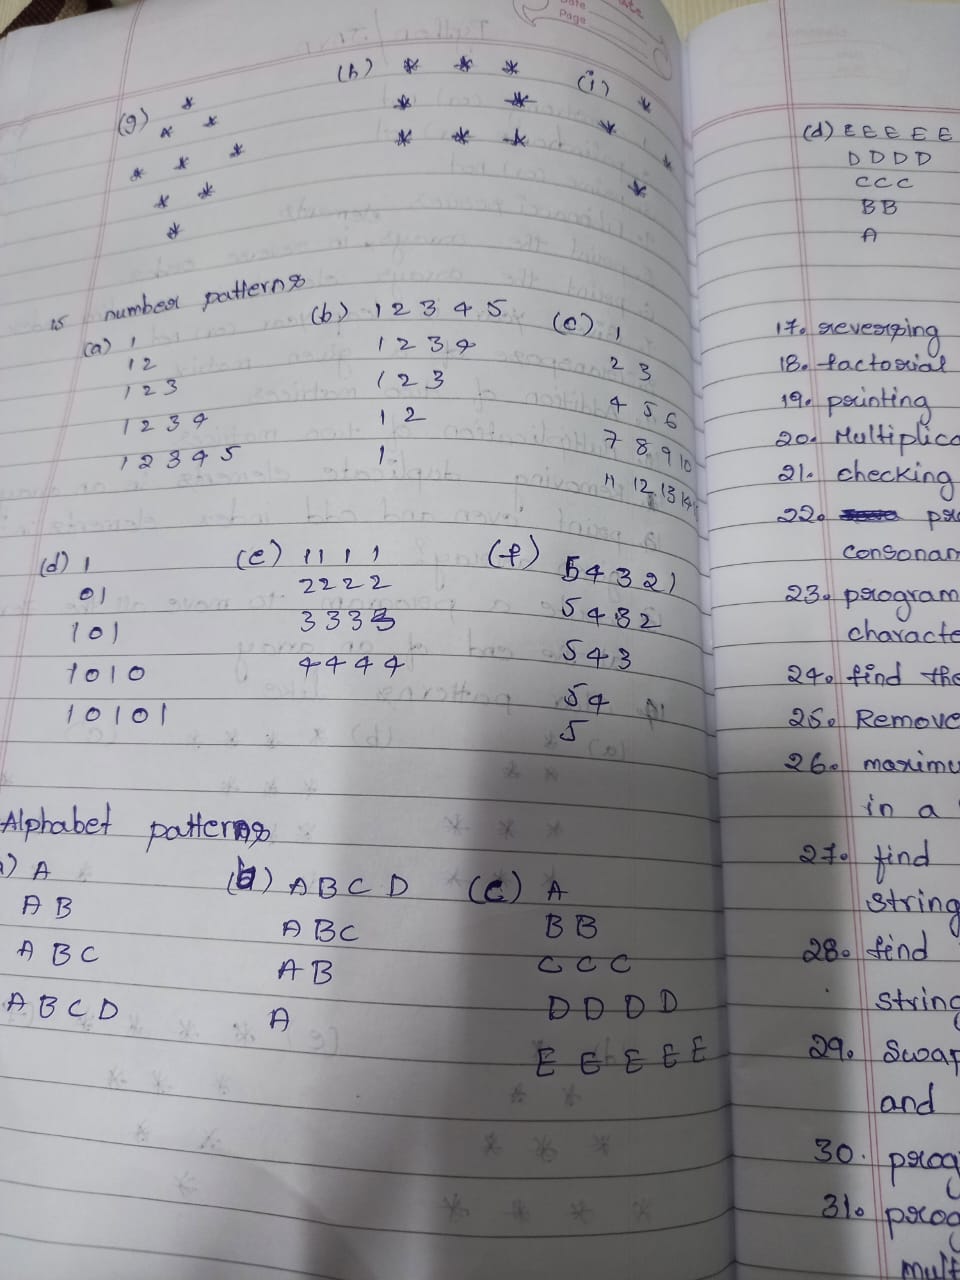 Date
Page
(g) *
* *
* * *
* *
*
(h) * * *
* *
* * *
(i) *
*
*
*
15 number patterns
(a) 1
1 2
1 2 3
1 2 3 4
1 2 3 4 5
(b) 1 2 3 4 5
1 2 3 4
1 2 3
1 2
1
(c) 1
2 3
4 5 6
7 8 9 10
11 12 13 14
(d) 1
01
101
1010
10101
(e) 1 1 1 1
2 2 2 2
3 3 3 3
4 4 4 4
(f) 5 4 3 2 1
5 4 3 2
5 4 3
5 4
5
Alphabet patterns
) A
A B
A B C
A B C D
(b) A B C D
A B C
A B
A
(c) A
B B
C C C
D D D D
E E E E E
(d) E E E E E
D D D D
C C C
B B
A
17. reversing
18. factorial
19. printing
20. Multiplica
21. checking
22. pr
consonan
23. program
characte
24. find the
25. Remove
26. maximu
in a
27. find
string
28. find
string
29. Swap
and
30. prog
31. prog
mult